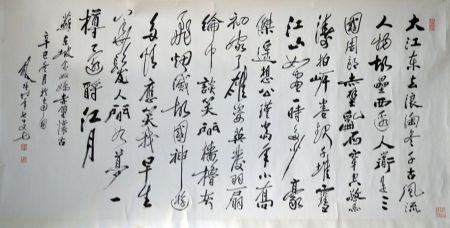 大江东去浪淘尽千古风流
人物故垒西边人道是三
國周郎赤壁乱石穿空惊
涛拍岸卷起千堆雪
江山如画一时多少豪
杰遥想公瑾当年小乔
初嫁了雄姿英发羽扇
纶巾谈笑间樯橹灰
飞烟灭故國神游
多情应笑我早生
华发人间如梦一
樽还酹江月
苏东坡念奴娇赤壁怀古
辛巳